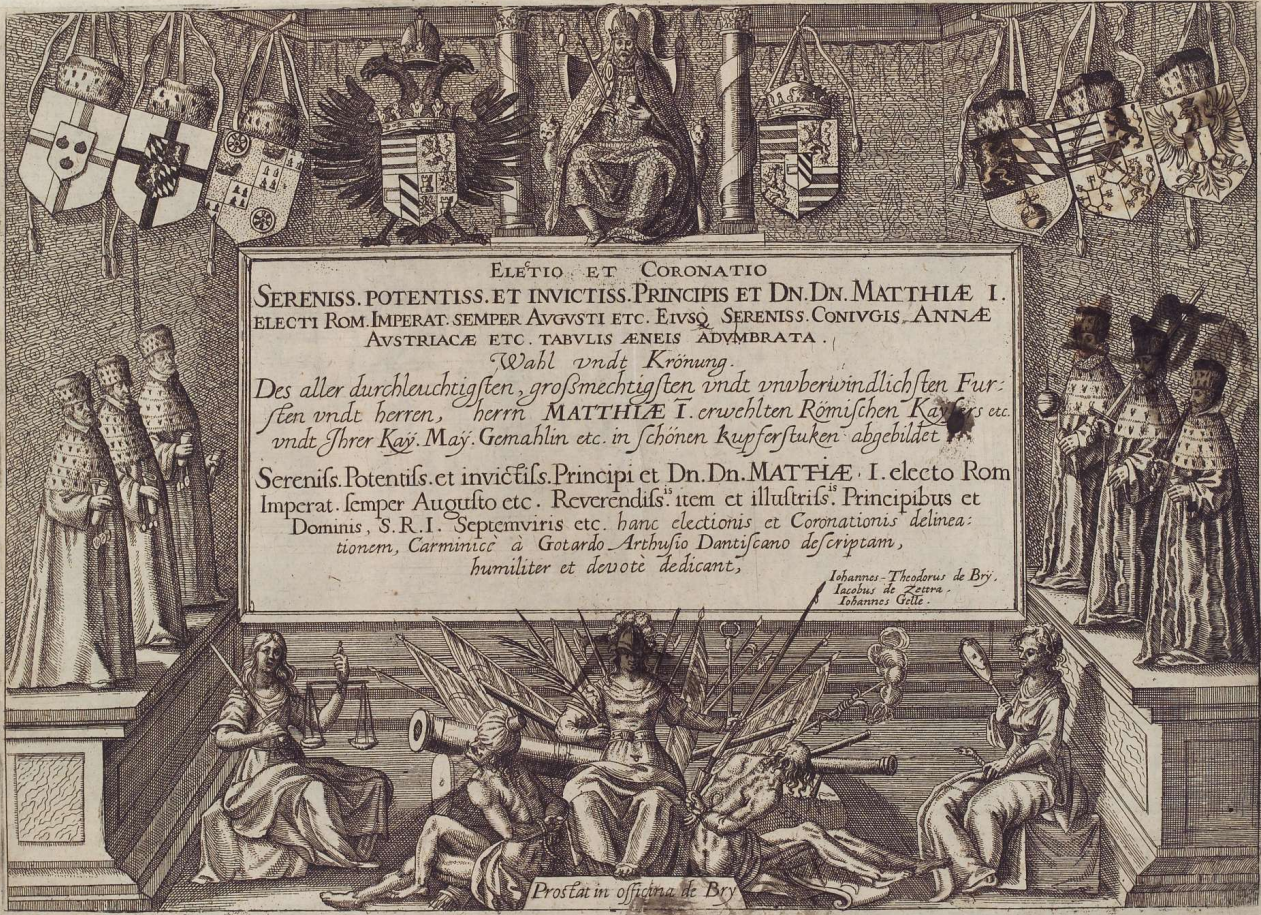 Electio et Coronatio
Sereniss. potentiss. et invictiss. Principis et Dn. Dn. Matthiæ I.
electi Rom. Imperat. semper Avgvsti etc. Eivsq̃ Sereniss. Conivgis Annæ
Avstriacæ etc. tabvlis æneis advmbrata.
Wahl vndt Krönung.
Des aller durchleuchtigſten, großmechtigſten vndt vnvberwindlichſten Fur:
ſten vndt herren, herrn MATTHIÆ I. erwehlten Römiſchen Kayſers etc.
vndt Jhrer Kaÿ. Maÿ. Gemahlin etc. in ſchönen kupferſtuken abgebildet
Sereniſs. Potentiſs. et invictiſs. Principi et Dn. Dn. MATTHIÆ · I. electo Rom
Imperat. ſemper Auguſto etc. Reverendiſs.is item et illuſtriſs.is Principibus et
Dominis, S. R. I. Septemviris etc. hanc electionis et Coronationis delinea:
tionem, Carminicè à Gotardo Arthuſio Dantiſcano deſcriptam,
humiliter et devote dedicant,
Iohannes-Theodorus de Brÿ.
Iacobus de Zettra.
Iohannes Gelle.
Proſtat in officina de Bry